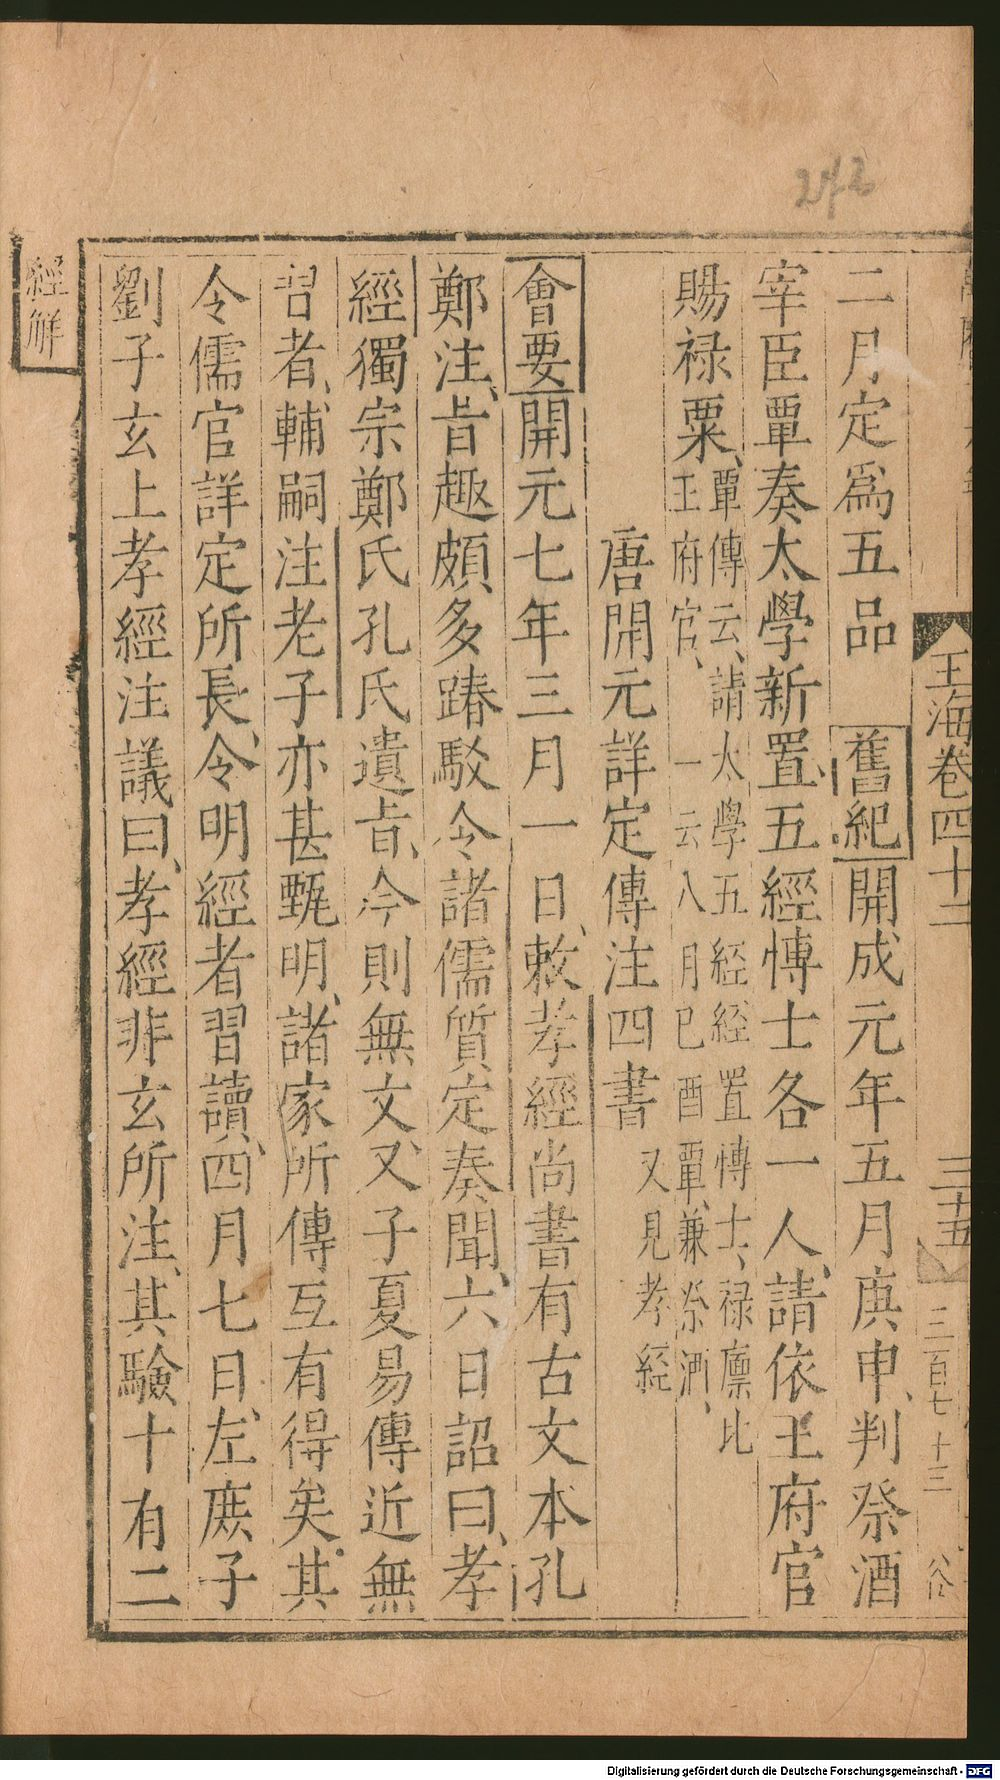 玉海卷四十二
三十五
三百七十三
二月定爲五品 舊紀開成元年五月庚申、判祭酒
宰臣覃奏太學新置、五經博士各一人、請依王府官
賜祿粟、覃傳云、請太學五經經置博士、祿廩比
王府官、一云八月已酉覃、兼祭酒、
唐開元詳定傳注四書又見孝經
會要開元七年三月一日、敕孝經尚書有古文本孔
鄭注、旨趣頗多踳駁令諸儒質定奏聞、六日詔曰、孝
經獨宗鄭氏孔氏遺旨、今則無文、又子夏易傳近無
習者、輔嗣注老子亦甚甄明、諸家所傳互有得矣其
令儒官詳定所長、令明經者習讀、四月七日、左庶子
劉子玄上孝經注議曰、孝經非玄所注、其驗十有二
經解
243
Digitalisierung gefördert durch die Deutsche Forschungsgemeinschaft - DFG